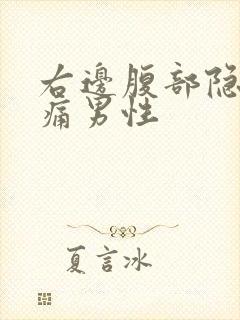 右邊腹部隐
痛男性
夏言冰